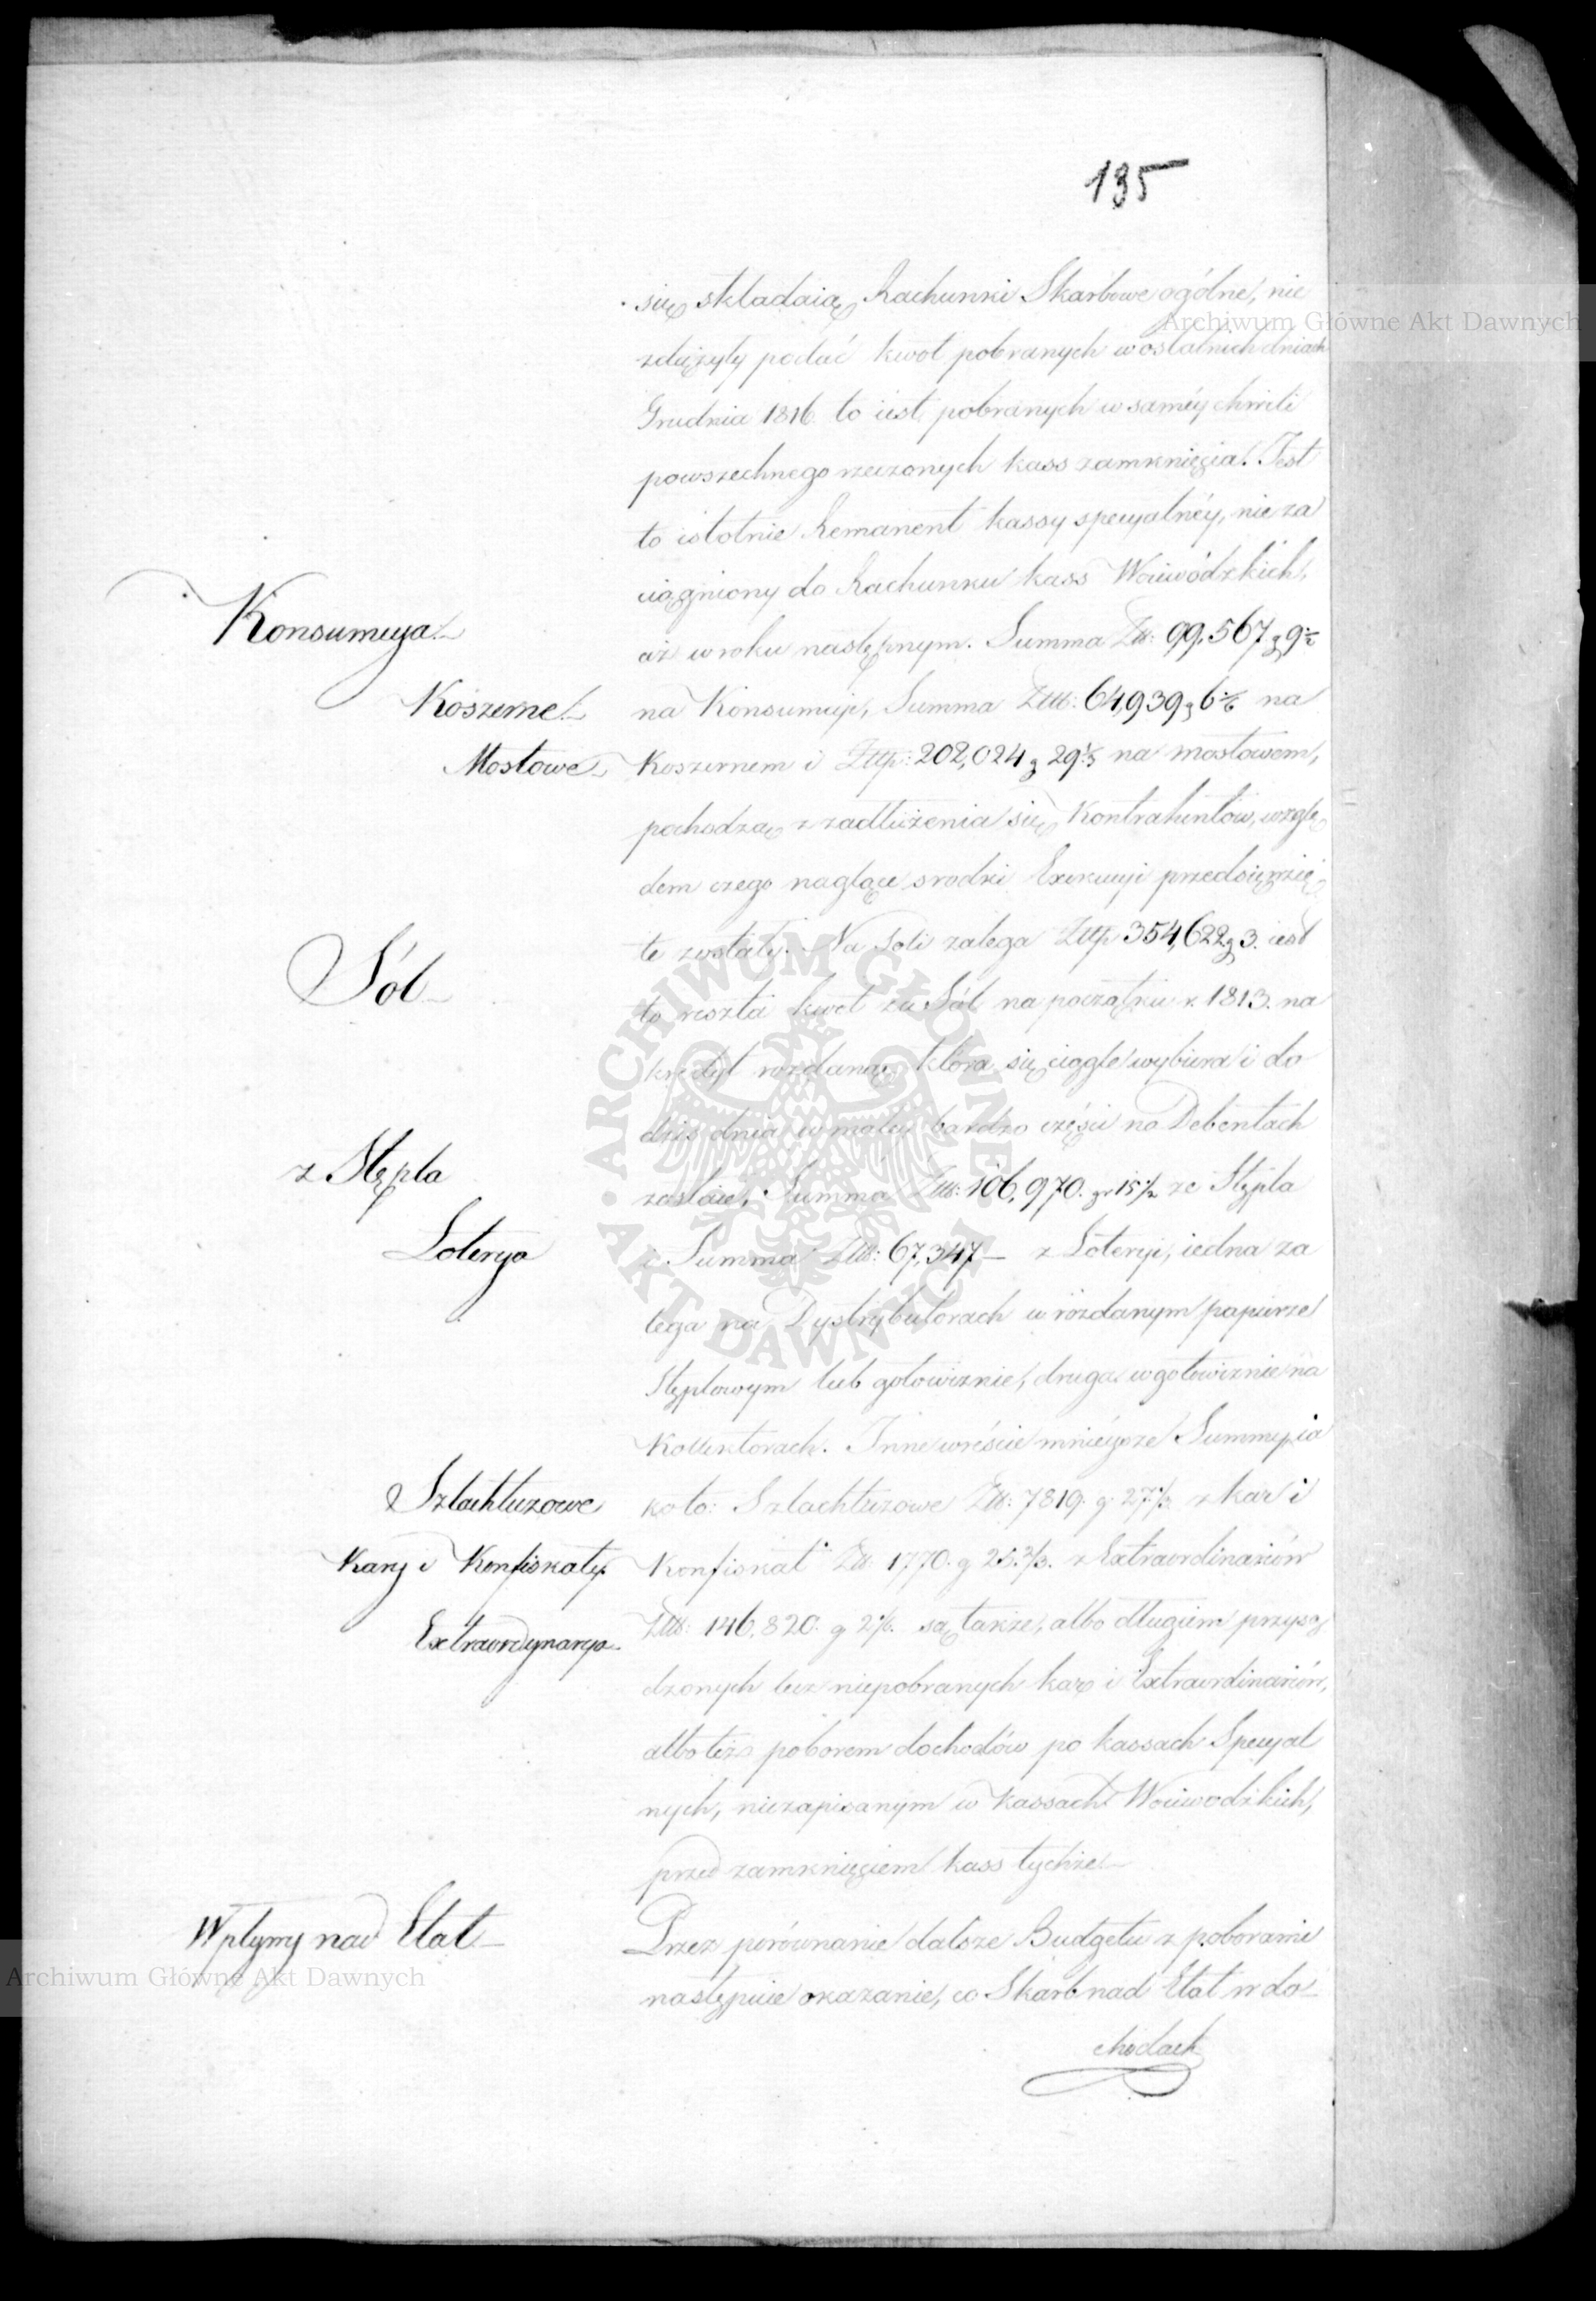 135
się składaią Rachunki Skarbowe ogólne, nie
zdążyły podać kwot pobranych w ostatnich dniach
Grudnia 1816 to iest pobranych w saméy chwili
powszechnego rzeczonych kass zamknięcia. Jest
to istotnie Remanent kassy specyalnéy, nie za
ciągniony do Rachunku kass Woiewódzkich,
Konsumcya
aż w roku następnym. Summa Złł: 99,567 g 9
Koszerne
na Konsumcji, Summa Złł: 64,939 g 6 na
Mostowe
Koszernem i Złtp: 202,024 g 29 1/3 na mostowem,
pochodzą z zadłużenia się Kontrahentów, wzglę
dem czego naglące srodki Exekucyi przedsięwzię
te zostały. Na Soli zalega Złtp 354,622 g 3. iest
Sól
to reszta kwot za Sól na początku r. 1813. na
kredyt rozdaną, która się ciągle wybiera i do
dziś dnia w małéj bardzo części na Debentach
z Stępla
zostaie, Summa Złł: 106,970. gr 15 1/2 ze Stępla
Loterya
i Summa Złł: 67,347 — z Loteryi, iedna za
lega na Dystrybutorach w rozdanym papierze
Stęplowym lub gotowiznie, druga w gotowiznie na
Kollektorach. Inne wreście mnieysze Summy, ia
Szlachtuzowe
ko to: Szlachtuzowe Złł: 7819. g 27 1/2 z kar i
Kary i Konfiskaty
Konfiskat Złł 1770. g 25 2/3. z Extraordinariów
Extraordynarya
Złł: 146,820. g 2 są także, albo długiem przysą
dzonych lecz niepobranych kar i Extraordinariów,
albo też poborem dochodów po kassach Specyal
nych, niezapisanym w kassach Woiewodzkich,
przed zamknięciem kass tychże.—
Wpływy nad Etat
Przez porównanie dalsze Budgetu z poborami
następuie okazanie, co Skarb nad Etat w do-
chodach
Archiwum Główne Akt Dawnych
Archiwum Główne Akt Dawnych
ARCHIWUM GŁÓWNE AKT DAWNYCH